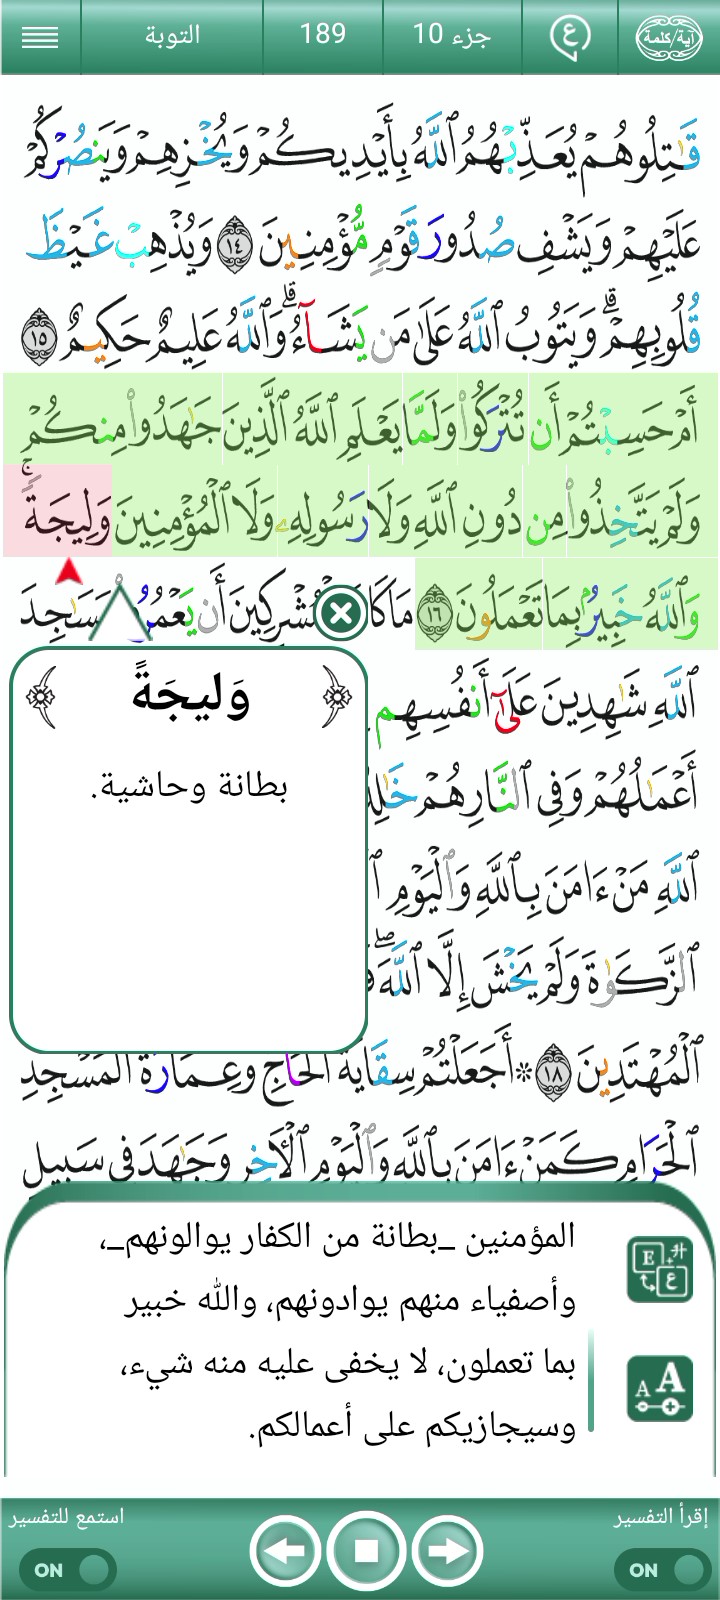 آية/كلمة
ع
جزء 10
189
التوبة
قَٰتِلُوهُمْ يُعَذِّبْهُمُ ٱللَّهُ بِأَيْدِيكُمْ وَيُخْزِهِمْ وَيَنصُرْكُمْ
عَلَيْهِمْ وَيَشْفِ صُدُورَ قَوْمٍ مُّؤْمِنِينَ ١٤ وَيُذْهِبْ غَيْظَ
قُلُوبِهِمْ ۗ وَيَتُوبُ ٱللَّهُ عَلَىٰ مَن يَشَآءُ ۗ وَٱللَّهُ عَلِيمٌ حَكِيمٌ ١٥
أَمْ حَسِبْتُمْ أَن تُتْرَكُوا۟ وَلَمَّا يَعْلَمِ ٱللَّهُ ٱلَّذِينَ جَٰهَدُوا۟ مِنكُمْ
وَلَمْ يَتَّخِذُوا۟ مِن دُونِ ٱللَّهِ وَلَا رَسُولِهِۦ وَلَا ٱلْمُؤْمِنِينَ وَلِيجَةً ۚ
وَٱللَّهُ خَبِيرٌۢ بِمَا تَعْمَلُونَ ١٦ مَا كَا شْرِكِينَ أَن يَعْمُرُ مَسَٰجِدَ
ٱللَّهِ شَٰهِدِينَ عَلَىٰٓ أَنفُسِهِم
أَعْمَٰلُهُمْ وَفِى ٱلنَّارِ هُمْ خَٰلِدُ
ٱللَّهِ مَنْ ءَامَنَ بِٱللَّهِ وَٱلْيَوْمِ
ٱلزَّكَوٰةَ وَلَمْ يَخْشَ إِلَّا ٱللَّهَ ۖ
ٱلْمُهْتَدِينَ ١٨ ۞ أَجَعَلْتُمْ سِقَايَةَ ٱلْحَآجِّ وَعِمَارَةَ ٱلْمَسْجِدِ
ٱلْحَرَامِ كَمَنْ ءَامَنَ بِٱللَّهِ وَٱلْيَوْمِ ٱلْـَٔاخِرِ وَجَٰهَدَ فِى سَبِيلِ
وَليجَةً
بطانة وحاشية.
المؤمنين _بطانة من الكفار يوالونهم_،
وأصفياء منهم يوادونهم، والله خبير
بما تعملون، لا يخفى عليه منه شيء،
وسيجازيكم على أعمالكم.
إقرأ التفسير
ON
استمع للتفسير
ON